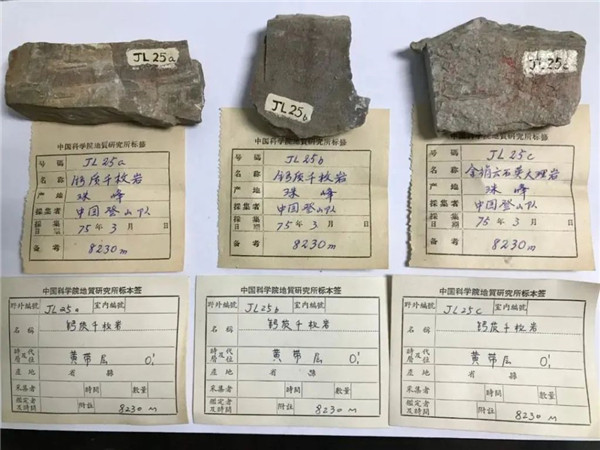 JL25a
JL25b
JL25c
中国科学院地質研究所标签
号碼 JL25a
名称 钙质千枚岩
产地 珠峰
採集者 中国登山队
採集日期 75年3月 日
备考 8230m
中国科学院地質研究所标签
号碼 JL25b
名称 钙质千枚岩
产地 珠峰
採集者 中国登山队
採集日期 75年3月 日
备考 8230m
中国科学院地質研究所标签
号碼 JL25c
名称 含绢云石英大理岩
产地 珠峰
採集者 中国登山队
採集日期 75年3月 日
备考 8230m
中国科学院地質研究所标本签
野外編號 JL25a 室内編號
名稱 钙质千枚岩
時代及層位 黄带层 O₁
產地 省 縣
采集者 時間 数量
鑑定者及時間 附註 8230m
中国科学院地質研究所标本签
野外編號 JL25b 室内編號
名稱 钙质千枚岩
時代及層位 黄带层 O₁
產地 省 縣
采集者 時間 数量
鑑定者及時間 附註 8230m
中国科学院地質研究所标本签
野外編號 JL25c 室内編號
名稱 钙质千枚岩
時代及層位 黄带层 O₁
產地 省 縣
采集者 時間 数量
鑑定者及時間 附註 8230m